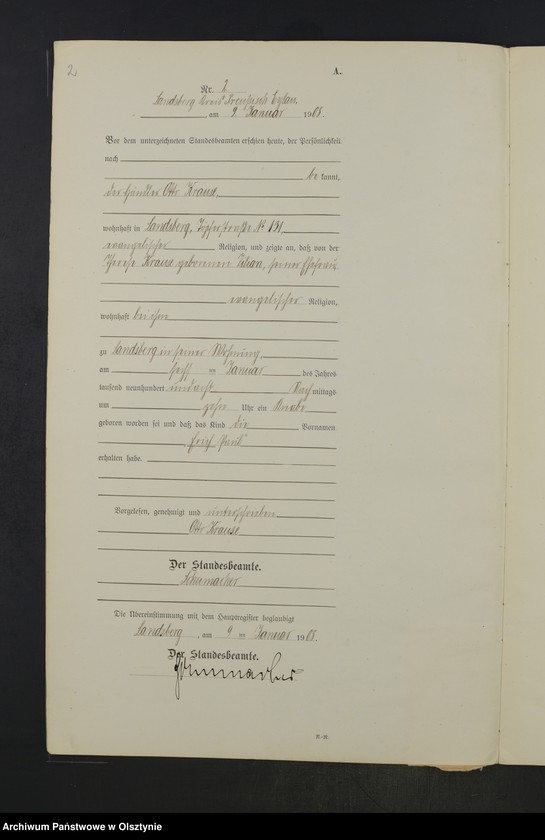 2
A.
Nr. 2
Landsberg Kreis Preußisch Eylau.
, am 9. Januar 1908.
Vor dem unterzeichneten Standesbeamten erschien heute, der Persönlichkeit
nach
be kannt,
der Händler Otto Krause,
wohnhaft in Landsberg, Töpferstraße Nr. 131,
evangelischer Religion, und zeigte an, daß von der
Therese Krause geborenen Zilian, seiner Ehefrau
evangelischer Religion,
wohnhaft bei ihm
zu Landsberg in seiner Wohnung,
am sechs ten Januar des Jahres
tausend neunhundert und acht Nach mittags
um zehn Uhr ein Knabe
geboren worden sei und daß das Kind die Vornamen
Erich Paul
erhalten habe.
Vorgelesen, genehmigt und unterschrieben
Otto Krause
Der Standesbeamte.
Schumacher
Die Übereinstimmung mit dem Hauptregister beglaubigt
Landsberg, am 9 ten Januar 1908.
Der Standesbeamte.
Schumacher
Archiwum Państwowe w Olsztynie